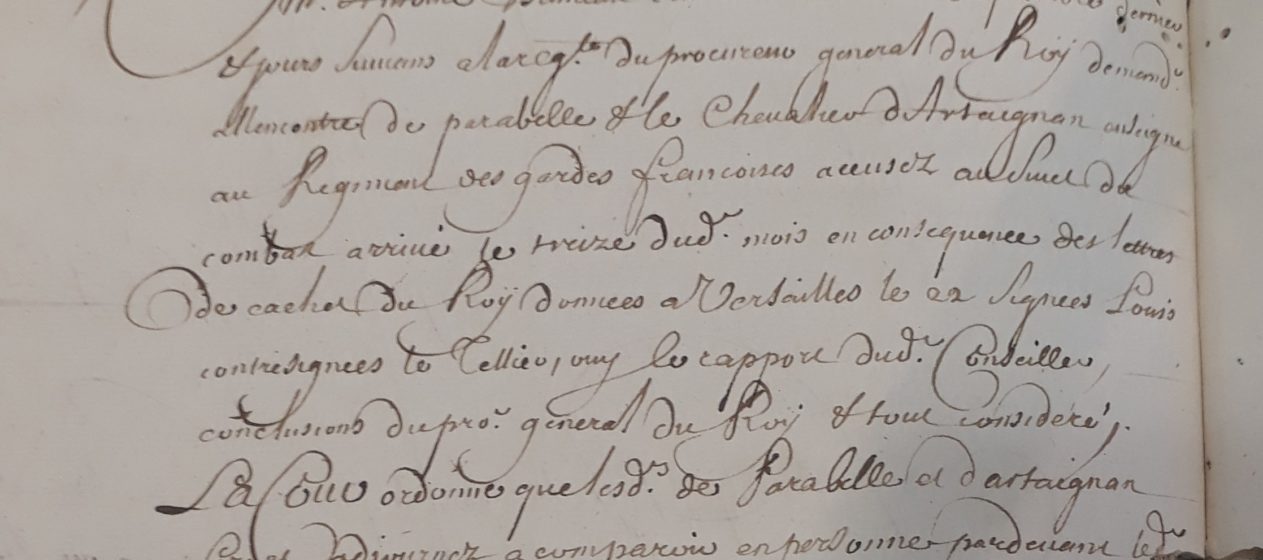 dernier
& jours suivans a la req.te du procureur general du Roÿ demand.r
allencontre de parabelle & le Chevalier d'Artaignan enseigne
au Regiment des gardes francoises accusez au suiet du
combat arrivé le treize dud.t mois en consequence des lettres
de cachet du Roÿ données a Versailles le 22 signées Louis
contresignées le Tellier, ouy le rapport dud.t Conseiller,
conclusions du pro.r general du Roÿ & tout consideré,.
La Cour ordonne que lesd.s de Parabelle et d'artaignan
adjournez a comparoir en personne pardevant led.t